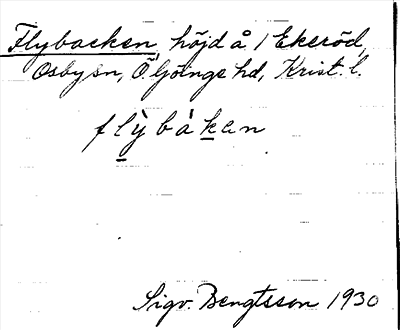 Flybacken, höjd å / Ekeröd,
Osby sn, Ö Göinge hd, Krist. l.
flỳbàkan
Sigv. Bengtsson 1930